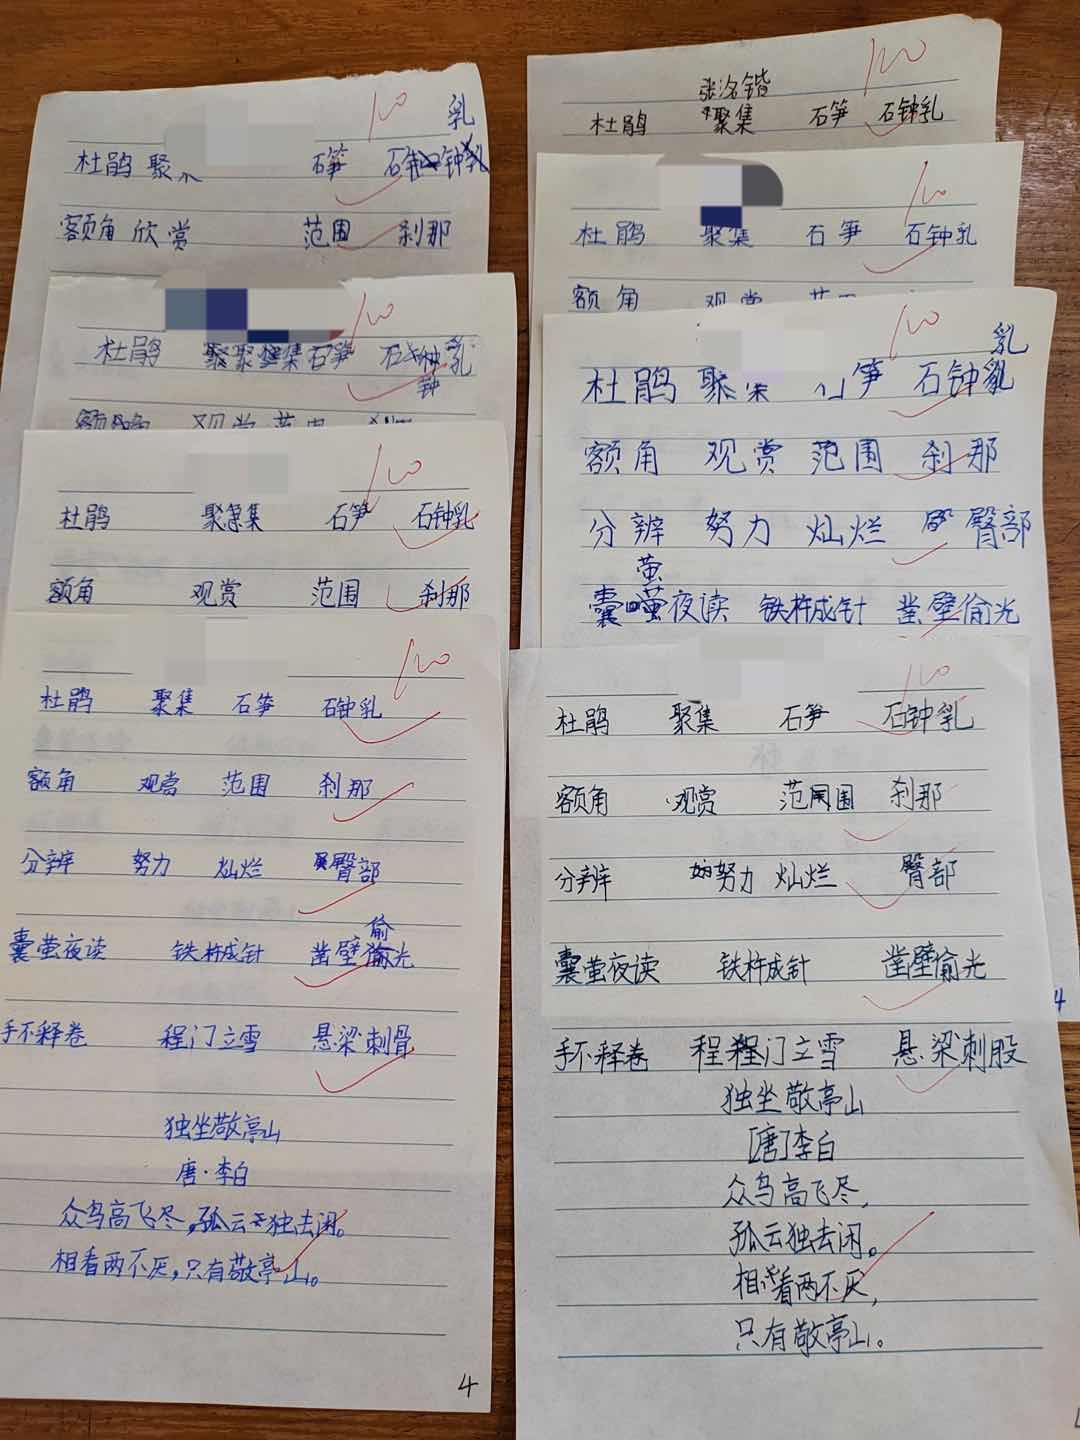 100 乳
杜鹃 聚 石笋 石钟
额角 欣赏 范围 刹那
100
杜鹃 聚集 石笋 石钟乳
钟
额角 观赏 范围
100
杜鹃 聚集 石笋 石钟乳
额角 观赏 范围 刹那
100
杜鹃 聚集 石笋 石钟乳
额角 观赏 范围 刹那
分辨 努力 灿烂 臀部
偷
囊萤夜读 铁杵成针 凿壁光
手不释卷 程门立雪 悬梁刺骨
独坐敬亭山
唐·李白
众鸟高飞尽,孤云独去闲。
相看两不厌,只有敬亭山。
4
100
张洺锴
杜鹃 聚集 石笋 石钟乳
100
杜鹃 聚集 石笋 石钟乳
额角 观赏
100 乳
杜鹃 聚 笋 石钟
额角 观赏 范围 刹那
分辨 努力 灿烂 臀部
萤
囊夜读 铁杵成针 凿壁偷光
4
100
杜鹃 聚集 石笋 石钟乳
额角 观赏 范围 刹那
分辨 努力 灿烂 臀部
囊萤夜读 铁杵成针 凿壁偷光
手不释卷 程门立雪 悬梁刺股
独坐敬亭山
[唐]李白
众鸟高飞尽,
孤云独去闲。
相看两不厌,
只有敬亭山。